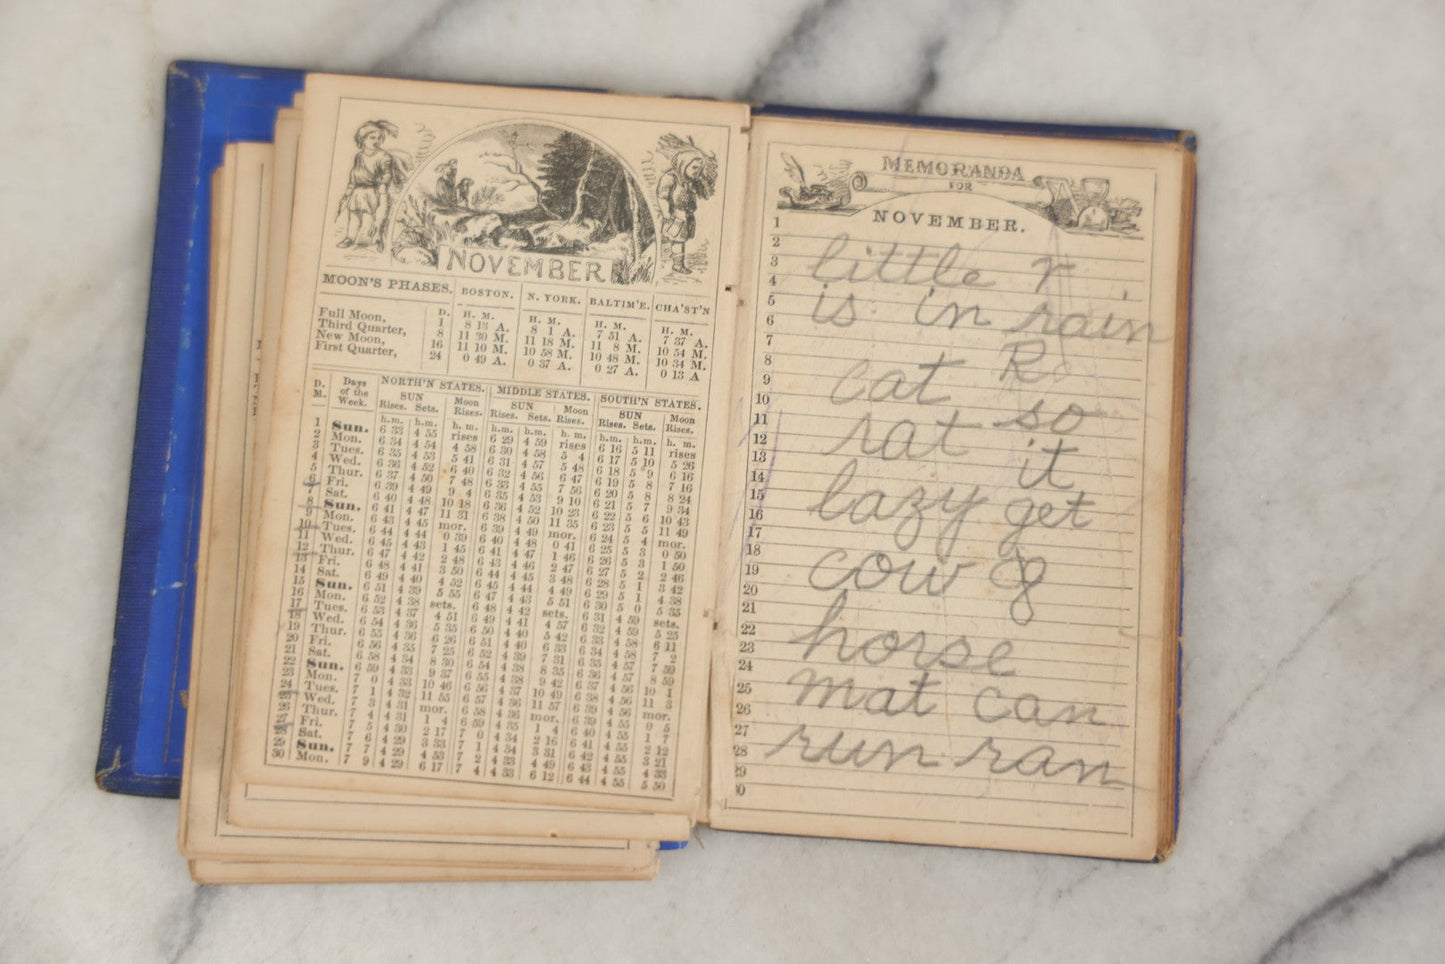 NOVEMBER
MOON'S PHASES. BOSTON. N. YORK. BALTIM'E. CHA'ST'N
D. H. M. H. M. H. M. H. M.
Full Moon, 1 8 13 A. 8 1 A. 7 51 A. 7 37 A.
Third Quarter, 8 11 30 M. 11 18 M. 11 8 M. 10 54 M.
New Moon, 16 11 10 M. 10 58 M. 10 48 M. 10 34 M.
First Quarter, 24 0 49 A. 0 37 A. 0 27 A. 0 13 A
D. M. Days of the Week. NORTH'N STATES. MIDDLE STATES. SOUTH'N STATES.
SUN Rises. Sets. Moon Rises. SUN Rises. Sets. Moon Rises. SUN Rises. Sets. Moon Rises.
h.m. h.m. h. m. h.m. h.m. h. m. h.m. h.m. h. m.
1 Sun. 6 33 4 55 rises 6 29 4 59 rises 6 16 5 11 rises
2 Mon. 6 34 4 54 4 58 6 30 4 58 5 4 6 17 5 10 5 26
3 Tues. 6 35 4 53 5 41 6 31 4 57 5 48 6 18 5 9 6 16
4 Wed. 6 36 4 52 6 40 6 32 4 56 6 47 6 19 5 8 7 16
5 Thur. 6 37 4 50 7 48 6 33 4 55 7 56 6 20 5 8 8 24
6 Fri. 6 39 4 49 9 4 6 35 4 53 9 10 6 21 5 7 9 34
7 Sat. 6 40 4 48 10 18 6 36 4 52 10 23 6 22 5 6 10 43
8 Sun. 6 41 4 47 11 31 6 38 4 50 11 35 6 23 5 5 11 49
9 Mon. 6 43 4 45 mor. 6 39 4 49 mor. 6 24 5 4 mor.
10 Tues. 6 44 4 44 0 39 6 40 4 48 0 41 6 25 5 3 0 50
11 Wed. 6 45 4 43 1 45 6 41 4 47 1 46 6 26 5 3 1 50
12 Thur. 6 47 4 42 2 48 6 43 4 46 2 47 6 27 5 2 2 46
13 Fri. 6 48 4 41 3 50 6 44 4 45 3 48 6 28 5 1 3 42
14 Sat. 6 49 4 40 4 52 6 45 4 44 4 49 6 29 5 1 4 38
15 Sun. 6 51 4 39 5 55 6 47 4 43 5 51 6 30 5 0 5 35
16 Mon. 6 52 4 38 sets. 6 48 4 42 sets. 6 31 4 59 sets.
17 Tues. 6 53 4 37 4 51 6 49 4 41 4 57 6 32 4 59 5 25
18 Wed. 6 54 4 36 5 35 6 50 4 40 5 42 6 33 4 58 6 11
19 Thur. 6 55 4 36 6 26 6 51 4 40 6 33 6 34 4 58 7 2
20 Fri. 6 56 4 35 7 25 6 52 4 39 7 31 6 35 4 57 7 59
21 Sat. 6 58 4 34 8 30 6 54 4 38 8 35 6 36 4 57 8 59
22 Sun. 6 59 4 33 9 37 6 55 4 38 9 42 6 37 4 56 10 1
23 Mon. 7 0 4 33 10 46 6 56 4 37 10 49 6 38 4 56 11 3
24 Tues. 7 1 4 32 11 55 6 57 4 36 11 57 6 39 4 56 mor.
25 Wed. 7 3 4 31 mor. 6 58 4 36 mor. 6 40 4 55 0 5
26 Thur. 7 4 4 31 1 4 6 59 4 35 1 4 6 40 4 55 1 7
27 Fri. 7 5 4 30 2 17 7 0 4 34 2 16 6 41 4 55 2 12
28 Sat. 7 6 4 29 3 33 7 1 4 34 3 31 6 42 4 55 3 21
29 Sun. 7 7 4 29 4 53 7 2 4 33 4 49 6 43 4 55 4 33
30 Mon. 7 9 4 29 6 17 7 4 4 33 6 12 6 44 4 55 5 50
MEMORANDA
FOR
NOVEMBER.
1
2
3 little r
4
5 is in rain
6
7 R
8
9 cat so
10
11 rat it
12
13
14 lazy get
15
16
17 cow &
18
19
20
21 horse
22
23 mat can
24
25
26 run ran
27
28
29
30